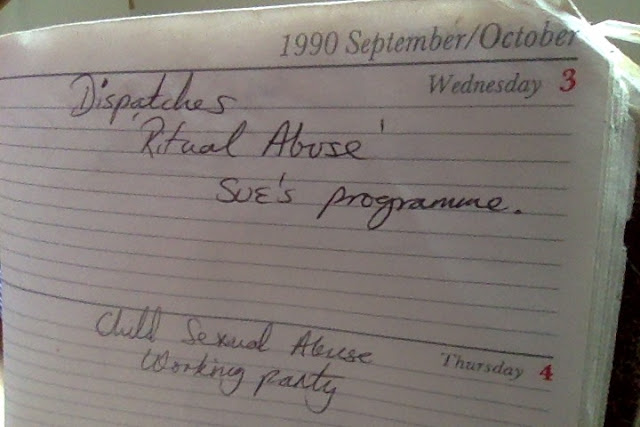 1990 September/October
Wednesday 3
Dispatches
'Ritual Abuse'
SUE's programme.
Thursday 4
Child Sexual Abuse
Working party